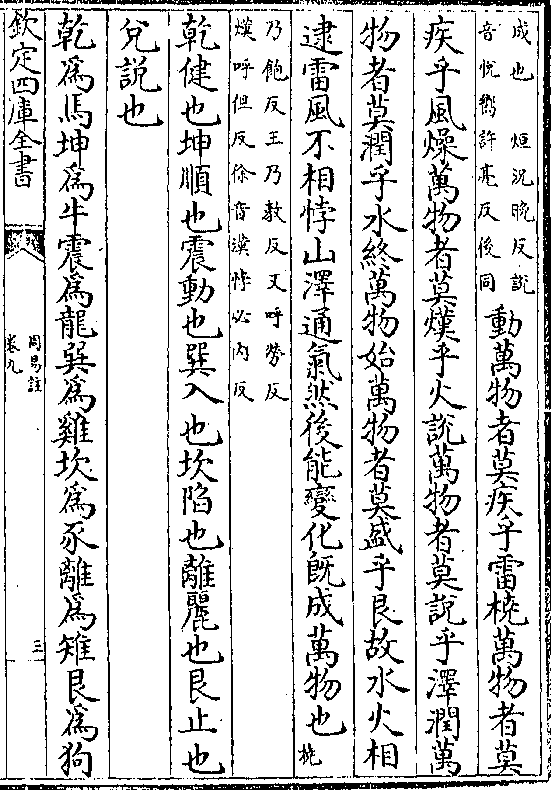 成也　烜況晚反說
音悦嚮許亮反後同
動萬物者莫疾乎雷橈萬物者莫
疾乎風燥萬物者莫熯乎火說萬物者莫說乎澤潤萬
物者莫潤乎水終萬物始萬物者莫盛乎艮故水火相
逮雷風不相悖山澤通氣然後能變化既成萬物也橈
乃飽反王乃教反又呼勞反
熯呼但反徐音漢悖必内反
乾健也坤順也震動也巽入也坎陷也離麗也艮止也
兌說也
乾爲馬坤爲牛震爲龍巽爲雞坎爲豕離爲雉艮爲狗
欽定四庫全書
周易註
卷九
三